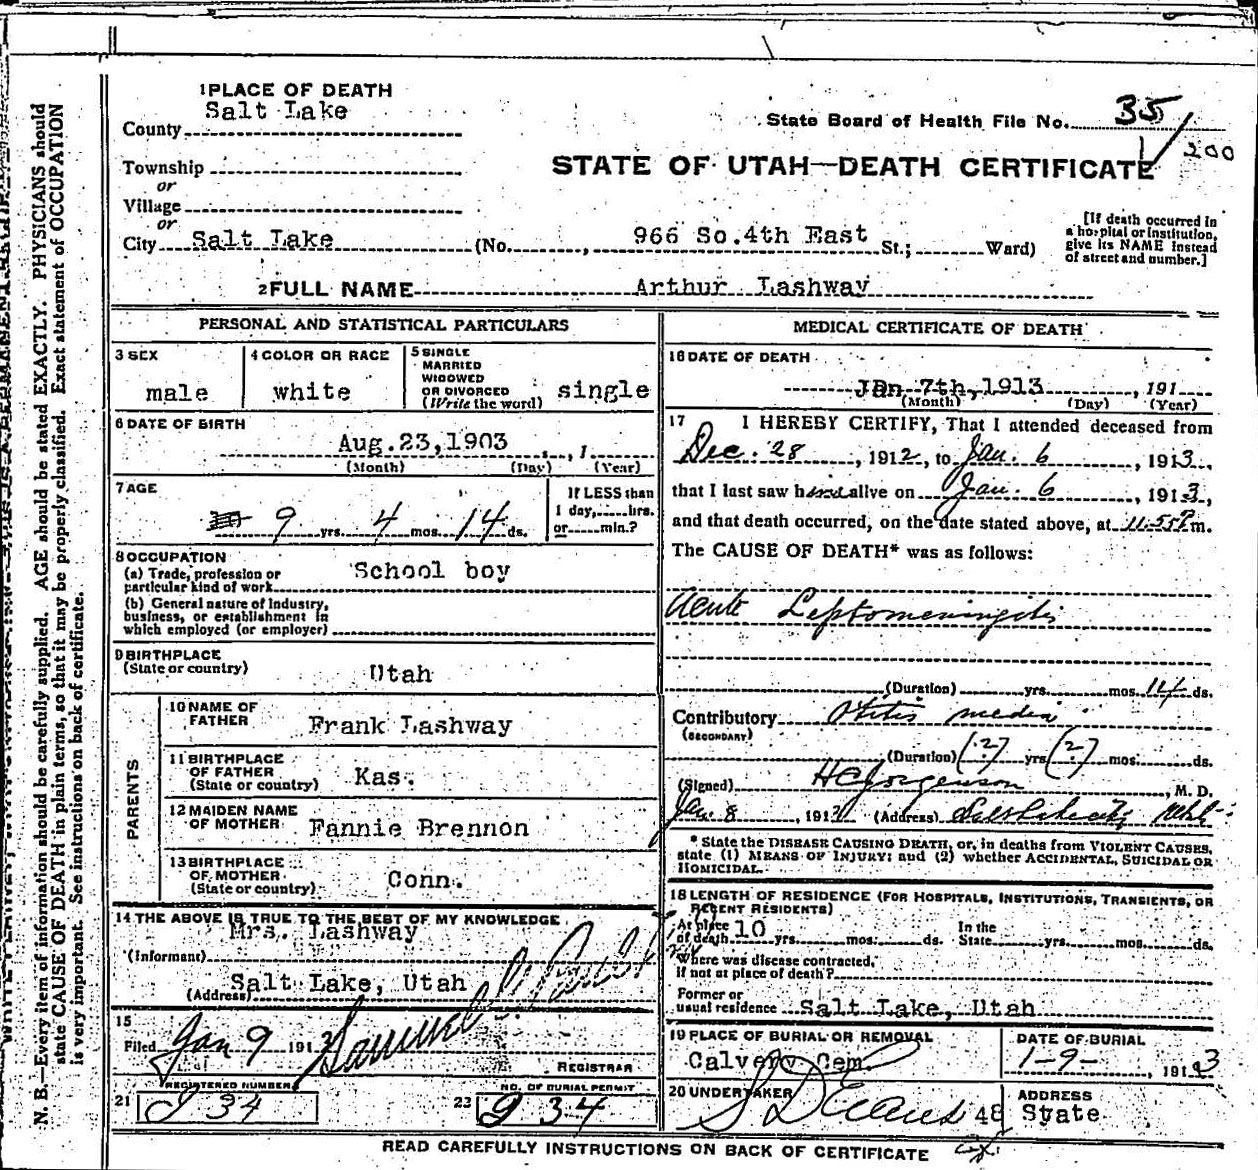 1 PLACE OF DEATH
County Salt Lake
State Board of Health File No. 35
200
STATE OF UTAH—DEATH CERTIFICATE
Township
or
Village
or
City Salt Lake (No. , 966 So.4th East St.; Ward)
[If death occurred in a hospital or institution, give its NAME instead of street and number.]
2 FULL NAME Arthur Lashway
PERSONAL AND STATISTICAL PARTICULARS
3 SEX
male
4 COLOR OR RACE
white
5 SINGLE MARRIED WIDOWED OR DIVORCED (Write the word) single
6 DATE OF BIRTH
Aug.23,1903 , 1
(Month) (Day) (Year)
7 AGE
9 yrs. 4 mos. 14 ds.
If LESS than 1 day, hrs. or min.?
8 OCCUPATION
(a) Trade, profession or particular kind of work School boy
(b) General nature of Industry, business, or establishment in which employed (or employer)
9 BIRTHPLACE
(State or country) Utah
PARENTS
10 NAME OF FATHER Frank Lashway
11 BIRTHPLACE OF FATHER (State or country) Kas.
12 MAIDEN NAME OF MOTHER Fannie Brennon
13 BIRTHPLACE OF MOTHER (State or country) Conn.
14 THE ABOVE IS TRUE TO THE BEST OF MY KNOWLEDGE
(Informant) Mrs. Lashway
(Address) Salt Lake, Utah
15
Filed Jan 9 191 Samuel G Paul
REGISTRAR
REGISTERED NUMBER
21 J 34
NO. OF BURIAL PERMIT
22 J 34
MEDICAL CERTIFICATE OF DEATH
16 DATE OF DEATH
Jan 7th,1913 , 191
(Month) (Day) (Year)
17 I HEREBY CERTIFY, That I attended deceased from
Dec. 28 , 1912, to Jan. 6 , 1913.,
that I last saw him alive on Jan. 6 , 1913,
and that death occurred, on the date stated above, at 11.55 P m.
The CAUSE OF DEATH* was as follows:
Acute Leptomeningitis
(Duration) yrs. mos. 14 ds.
Contributory Otitis media
(SECONDARY)
(Duration) (?) yrs (?) mos. ds.
(Signed) HC Jorgenson , M. D.
Jan. 8 , 191 (Address) Salt Lake City Utah
* State the DISEASE CAUSING DEATH, or, in deaths from VIOLENT CAUSES,
state (1) MEANS OF INJURY; and (2) whether ACCIDENTAL, SUICIDAL OR
HOMICIDAL.
18 LENGTH OF RESIDENCE (FOR HOSPITALS, INSTITUTIONS, TRANSIENTS, OR
RECENT RESIDENTS)
At place of death 10 yrs. mos. ds. In the State yrs. mos. ds.
Where was disease contracted,
if not at place of death?
Former or usual residence Salt Lake, Utah
19 PLACE OF BURIAL OR REMOVAL
Calvery Cem.
DATE OF BURIAL
1-9- , 191 3
20 UNDERTAKER
S D Evans
ADDRESS
48 State
READ CAREFULLY INSTRUCTIONS ON BACK OF CERTIFICATE
N. B.—Every item of information should be carefully supplied. AGE should be stated EXACTLY. PHYSICIANS should
state CAUSE OF DEATH in plain terms, so that it may be properly classified. Exact statement of OCCUPATION
is very important. See instructions on back of certificate.